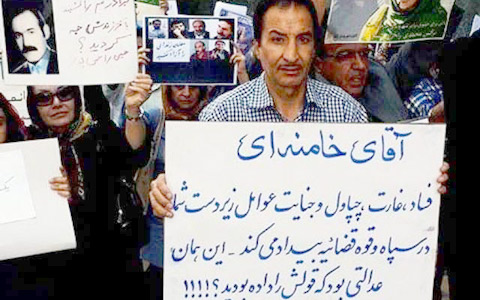 آقای خامنه ای
فساد، غارت، چپاول و جنایت عوامل زیردست شما
در سپاه و قوه قضائیه بیداد می کند - این همان
عدالتی بود که قولش را داده بودید؟!!!!
کردید؟